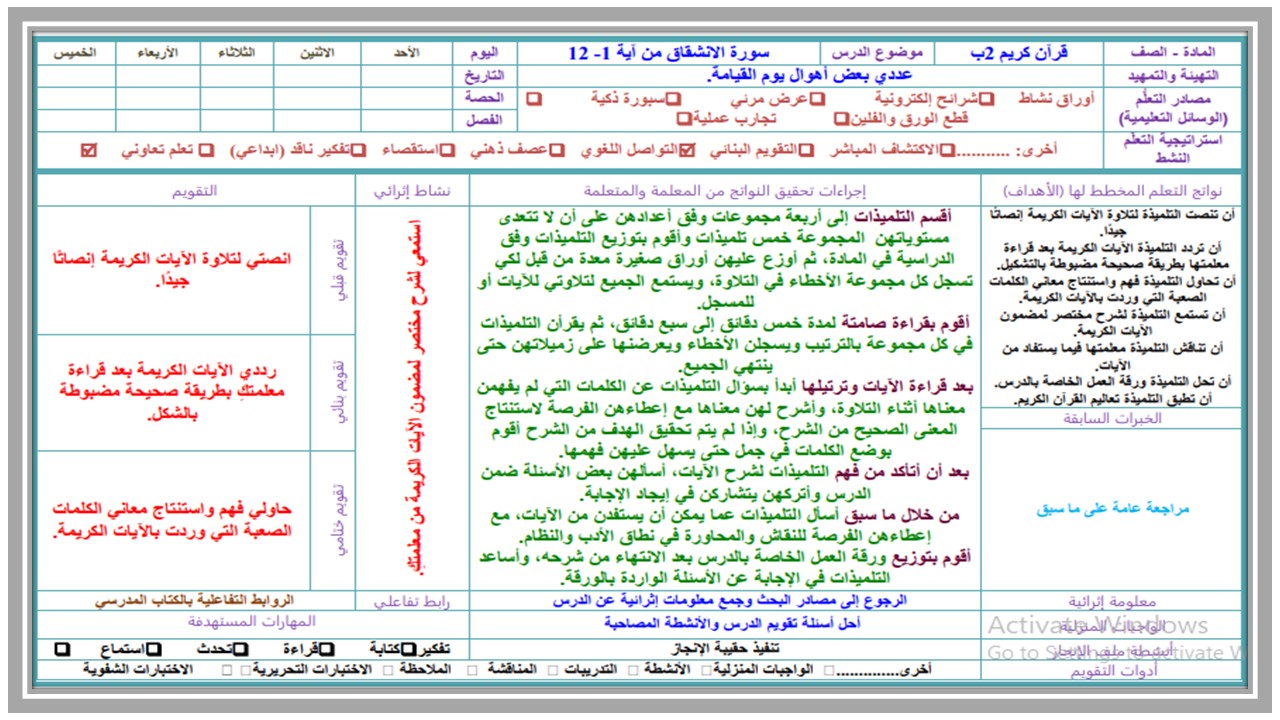 المادة - الصف قرآن كريم 2ب موضوع الدرس سورة الانشقاق من آية 1- 12 اليوم الأحد الاثنين الثلاثاء الأربعاء الخميس
التهيئة والتمهيد عددي بعض أهوال يوم القيامة. التاريخ
مصادر التعلّم أوراق نشاط ❑شرائح إلكترونية ❑عرض مرئي ❑سبورة ذكية ❑ الحصة
(الوسائل التعليمية) قطع الورق والفلين❑ تجارب عملية❑ الفصل
استراتيجية التعلم
النشط
أخرى: ...........❑الاكتشاف المباشر ❑التقويم البنائي ☑التواصل اللغوي ❑عصف ذهني ❑استقصاء ❑تفكير ناقد (ابداعي) ❑ تعلم تعاوني ☑
نواتج التعلم المخطط لها (الأهداف) إجراءات تحقيق النواتج من المعلمة والمتعلمة نشاط إثرائي التقويم
أن تنصت التلميذة لتلاوة الآيات الكريمة إنصاتًا
جيدًا.
أن تردد التلميذة الآيات الكريمة بعد قراءة
معلمتها بطريقة صحيحة مضبوطة بالتشكيل.
أن تحاول التلميذة فهم واستنتاج معاني الكلمات
الصعبة التي وردت بالآيات الكريمة.
أن تستمع التلميذة لشرح مختصر لمضمون
الآيات الكريمة.
أن تناقش التلميذة معلمتها فيما يستفاد من
الآيات.
أن تحل التلميذة ورقة العمل الخاصة بالدرس.
أن تطبق التلميذة تعاليم القرآن الكريم.
الخبرات السابقة
مراجعة عامة على ما سبق
أقسم التلميذات إلى أربعة مجموعات وفق أعدادهن على أن لا تتعدى
مستوياتهن المجموعة خمس تلميذات وأقوم بتوزيع التلميذات وفق
الدراسية في المادة، ثم أوزع عليهن أوراق صغيرة معدة من قبل لكي
تسجل كل مجموعة الأخطاء في التلاوة، ويستمع الجميع لتلاوتي للآيات أو
للمسجل.
أقوم بقراءة صامتة لمدة خمس دقائق إلى سبع دقائق، ثم يقرأن التلميذات
في كل مجموعة بالترتيب ويسجلن الأخطاء ويعرضنها على زميلاتهن حتى
ينتهي الجميع.
بعد قراءة الآيات وترتيلها أبدأ بسؤال التلميذات عن الكلمات التي لم يفهمن
معناها أثناء التلاوة، وأشرح لهن معناها مع إعطاءهن الفرصة لاستنتاج
المعنى الصحيح من الشرح، وإذا لم يتم تحقيق الهدف من الشرح أقوم
بوضع الكلمات في جمل حتى يسهل عليهن فهمها.
بعد أن أتأكد من فهم التلميذات لشرح الآيات، أسألهن بعض الأسئلة ضمن
الدرس وأتركهن يتشاركن في إيجاد الإجابة.
من خلال ما سبق أسأل التلميذات عما يمكن أن يستفدن من الآيات، مع
إعطاءهن الفرصة للنقاش والمحاورة في نطاق الأدب والنظام.
أقوم بتوزيع ورقة العمل الخاصة بالدرس بعد الانتهاء من شرحه، وأساعد
التلميذات في الإجابة عن الأسئلة الواردة بالورقة.
استمعي لشرح مختصر لمضمون الآيات الكريمة من معلمتكِ.
تقويم قبلي
انصتي لتلاوة الآيات الكريمة إنصاتًا
جيدًا.
تقويم بنائي
رددي الآيات الكريمة بعد قراءة
معلمتكِ بطريقة صحيحة مضبوطة
بالشكل.
تقويم ختامي
حاولي فهم واستنتاج معاني الكلمات
الصعبة التي وردت بالآيات الكريمة.
معلومة إثرائية الرجوع إلى مصادر البحث وجمع معلومات إثرائية عن الدرس رابط تفاعلي الروابط التفاعلية بالكتاب المدرسي
الواجبات المنزلية أحل أسئلة تقويم الدرس والأنشطة المصاحبة المهارات المستهدفة
أنشطة ملف الإنجاز تنفيذ حقيبة الإنجاز تفكير❑كتابة ❑قراءة ❑تحدث ❑استماع ❑
أدوات التقويم أخرى..............□ الواجبات المنزلية□ الأنشطة □ التدريبات □ المناقشة □ الملاحظة □ الاختبارات التحريرية□ □ الاختبارات الشفوية
Activate Windows
Go to Settings to activate W